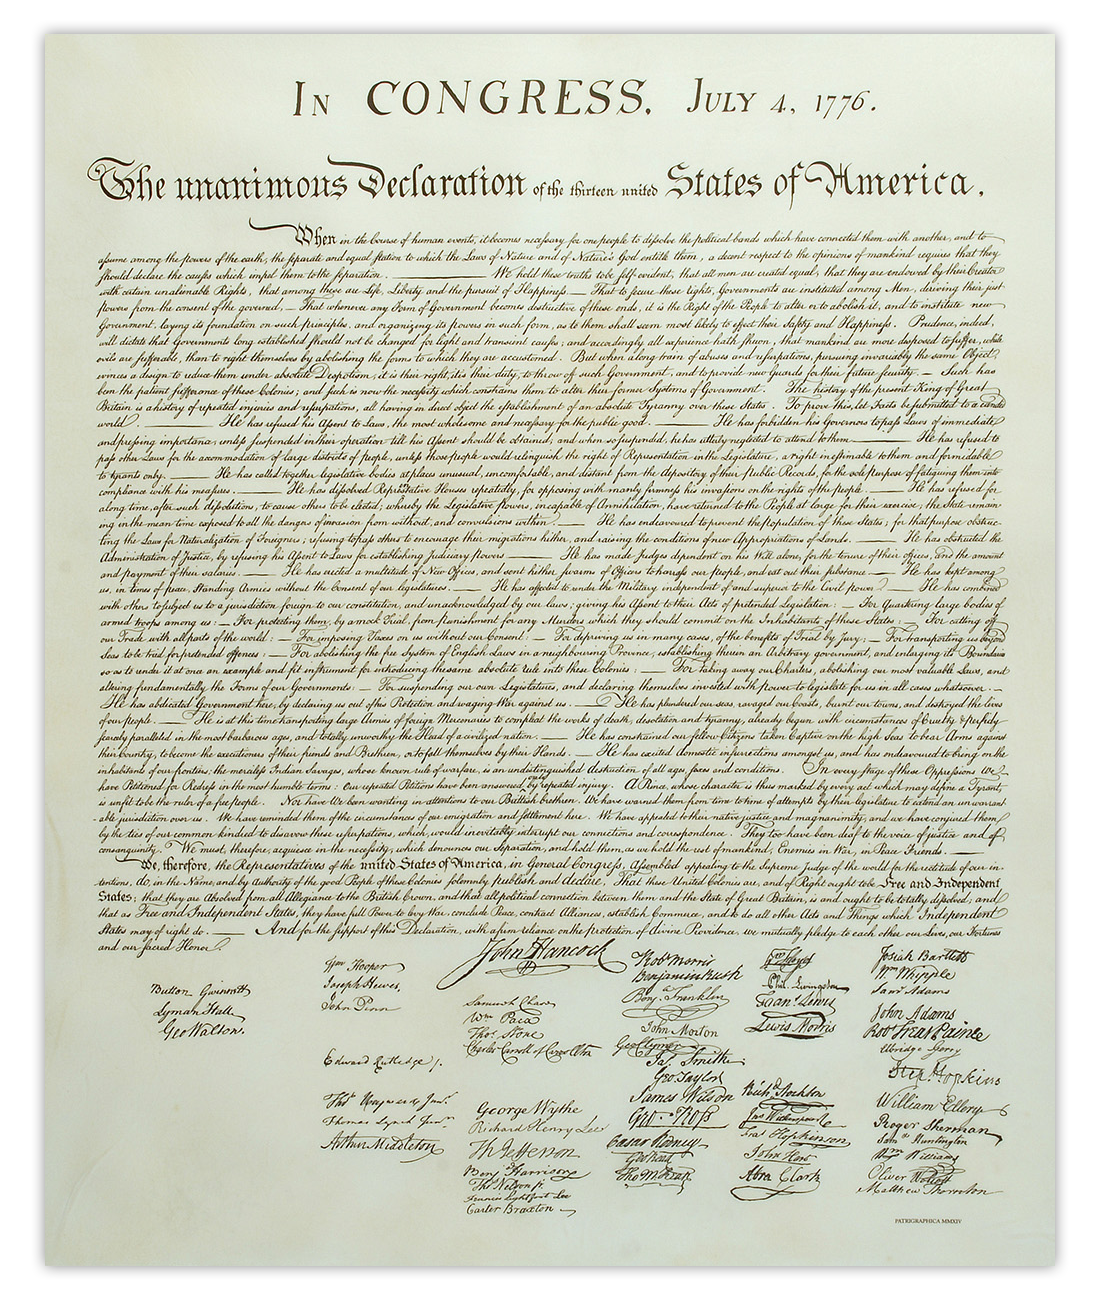 IN CONGRESS, JULY 4, 1776.
The unanimous Declaration of the thirteen united States of America,
When in the Course of human events, it becomes necessary for one people to dissolve the political bands which have connected them with another, and to
assume among the powers of the earth, the separate and equal station to which the Laws of Nature and of Nature's God entitle them, a decent respect to the opinions of mankind requires that they
should declare the causes which impel them to the separation. ——— We hold these truths to be self-evident, that all men are created equal, that they are endowed by their Creator
with certain unalienable Rights, that among these are Life, Liberty and the pursuit of Happiness.— That to secure these rights, Governments are instituted among Men, deriving their just
powers from the consent of the governed, — That whenever any Form of Government becomes destructive of these ends, it is the Right of the People to alter or to abolish it, and to institute new
Government, laying its foundation on such principles, and organizing its powers in such form, as to them shall seem most likely to effect their Safety and Happiness. Prudence, indeed,
will dictate that Governments long established should not be changed for light and transient causes; and accordingly all experience hath shewn, that mankind are more disposed to suffer, while
evils are sufferable, than to right themselves by abolishing the forms to which they are accustomed. But when a long train of abuses and usurpations, pursuing invariably the same Object
evinces a design to reduce them under absolute Despotism, it is their right, it is their duty, to throw off such Government, and to provide new Guards for their future security. — Such has
been the patient sufferance of these Colonies; and such is now the necessity which constrains them to alter their former Systems of Government. The history of the present King of Great
Britain is a history of repeated injuries and usurpations, all having in direct object the establishment of an absolute Tyranny over these States. To prove this, let Facts be submitted to a candid
world. ——— He has refused his Assent to Laws, the most wholesome and necessary for the public good. ——— He has forbidden his Governors to pass Laws of immediate
and pressing importance, unless suspended in their operation till his Assent should be obtained; and when so suspended, he has utterly neglected to attend to them. ——— He has refused to
pass other Laws for the accommodation of large districts of people, unless those people would relinquish the right of Representation in the Legislature, a right inestimable to them and formidable
to tyrants only. ——— He has called together legislative bodies at places unusual, uncomfortable, and distant from the depository of their public Records, for the sole purpose of fatiguing them into
compliance with his measures. ——— He has dissolved Representative Houses repeatedly, for opposing with manly firmness his invasions on the rights of the people. ——— He has refused for
a long time, after such dissolutions, to cause others to be elected; whereby the Legislative powers, incapable of Annihilation, have returned to the People at large for their exercise; the State remain-
ing in the mean time exposed to all the dangers of invasion from without, and convulsions within. ——— He has endeavoured to prevent the population of these States; for that purpose obstruc-
ting the Laws for Naturalization of Foreigners; refusing to pass others to encourage their migrations hither, and raising the conditions of new Appropriations of Lands. ——— He has obstructed the
Administration of Justice, by refusing his Assent to Laws for establishing Judiciary powers. ——— He has made Judges dependent on his Will alone, for the tenure of their offices, and the amount
and payment of their salaries. ——— He has erected a multitude of New Offices, and sent hither swarms of Officers to harrass our people, and eat out their substance. ——— He has kept among
us, in times of peace, Standing Armies without the Consent of our legislatures. ——— He has affected to render the Military independent of and superior to the Civil power. ——— He has combined
with others to subject us to a jurisdiction foreign to our constitution, and unacknowledged by our laws; giving his Assent to their Acts of pretended Legislation: — For Quartering large bodies of
armed troops among us: — For protecting them, by a mock Trial, from punishment for any Murders which they should commit on the Inhabitants of these States: — For cutting off
our Trade with all parts of the world: — For imposing Taxes on us without our Consent: — For depriving us in many cases, of the benefits of Trial by Jury: — For transporting us beyond
Seas to be tried for pretended offences: — For abolishing the free System of English Laws in a neighbouring Province, establishing therein an Arbitrary government, and enlarging its Boundaries
so as to render it at once an example and fit instrument for introducing the same absolute rule into these Colonies: — For taking away our Charters, abolishing our most valuable Laws, and
altering fundamentally the Forms of our Governments: — For suspending our own Legislatures, and declaring themselves invested with power to legislate for us in all cases whatsoever. —
He has abdicated Government here, by declaring us out of his Protection and waging War against us. ——— He has plundered our seas, ravaged our Coasts, burnt our towns, and destroyed the lives
of our people. ——— He is at this time transporting large Armies of foreign Mercenaries to compleat the works of death, desolation and tyranny, already begun with circumstances of Cruelty & perfidy
scarcely paralleled in the most barbarous ages, and totally unworthy the Head of a civilized nation. ——— He has constrained our fellow Citizens taken Captive on the high Seas to bear Arms against
their Country, to become the executioners of their friends and Brethren, or to fall themselves by their Hands. ——— He has excited domestic insurrections amongst us, and has endeavoured to bring on the
inhabitants of our frontiers, the merciless Indian Savages, whose known rule of warfare, is an undistinguished destruction of all ages, sexes and conditions. In every stage of these Oppressions We
have Petitioned for Redress in the most humble terms: Our repeated Petitions have been answered only by repeated injury. A Prince, whose character is thus marked by every act which may define a Tyrant,
is unfit to be the ruler of a free people. Nor have We been wanting in attentions to our Brittish brethren. We have warned them from time to time of attempts by their legislature to extend an unwarrant-
able jurisdiction over us. We have reminded them of the circumstances of our emigration and settlement here. We have appealed to their native justice and magnanimity, and we have conjured them
by the ties of our common kindred to disavow these usurpations, which, would inevitably interrupt our connections and correspondence. They too have been deaf to the voice of justice and of
consanguinity. We must, therefore, acquiesce in the necessity, which denounces our Separation, and hold them, as we hold the rest of mankind, Enemies in War, in Peace Friends. ———
We, therefore, the Representatives of the united States of America, in General Congress, Assembled, appealing to the Supreme Judge of the world for the rectitude of our in-
tentions, do, in the Name, and by Authority of the good People of these Colonies, solemnly publish and declare, That these United Colonies are, and of Right ought to be Free and Independent
States; that they are Absolved from all Allegiance to the British Crown, and that all political connection between them and the State of Great Britain, is and ought to be totally dissolved; and
that as Free and Independent States, they have full Power to levy War, conclude Peace, contract Alliances, establish Commerce, and to do all other Acts and Things which Independent
States may of right do. ——— And for the support of this Declaration, with a firm reliance on the protection of divine Providence, we mutually pledge to each other our Lives, our Fortunes
and our sacred Honor.
John Hancock
Button Gwinnett
Lyman Hall
Geo Walton.
Wm Hooper
Joseph Hewes,
John Penn
Edward Rutledge /.
Thos Heyward Junr.
Thomas Lynch Junr.
Arthur Middleton
Samuel Chase
Wm Paca
Thos Stone
Charles Carroll of Carrollton
George Wythe
Richard Henry Lee
Th Jefferson
Benj Harrison
Thos Nelson jr.
Francis Lightfoot Lee
Carter Braxton
Robt Morris
Benjamin Rush
Benj. Franklin
John Morton
Geo Clymer
Jas. Smith
Geo. Taylor
James Wilson
Geo. Ross
Caesar Rodney
Geo Read
Tho M:Kean
Wm Floyd
Phil. Livingston
Frans. Lewis
Lewis Morris
Richd. Stockton
Jno Witherspoon
Fras. Hopkinson
John Hart
Abra Clark
Josiah Bartlett
Wm Whipple
Saml Adams
John Adams
Robt Treat Paine
Elbridge Gerry
Step. Hopkins
William Ellery
Roger Sherman
Saml Huntington
Wm Williams
Oliver Wolcott
Matthew Thornton
PATRIGRAPHICA MMXIV